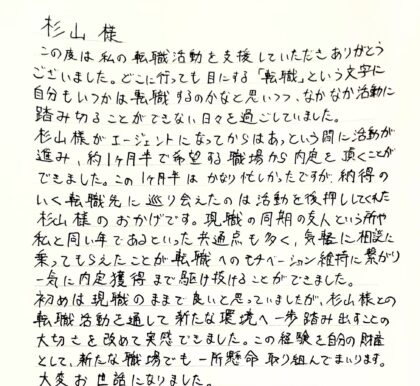 杉山様
この度は私の転職活動を支援していただきありがとう
ございました。どこに行っても目にする「転職」という文字に
自分もいつかは転職するのかなと思いつつ、なかなか活動に
踏み切ることができない日々を過ごしていました。
杉山様がエージェントになってからはあっという間に活動が
進み、約1ヶ月半で希望する職場から内定を頂くことが
できました。この1ヶ月半はかなり忙しかったですが、納得の
いく転職先に巡り会えたのは活動を後押ししてくれた
杉山様のおかげです。現職の同期の友人という所や
私と同い年であるといった共通点も多く、気軽に相談に
乗ってもらえたことが転職へのモチベーション維持に繋がり
一気に内定獲得まで駆け抜けることができました。
初めは現職のままで良いと思っていましたが、杉山様との
転職活動を通して新たな環境へ一歩踏み出すことの
大切さを改めて実感できました。この経験を自分の財産
として、新たな職場でも一所懸命取り組んでまいります。
大変お世話になりました。